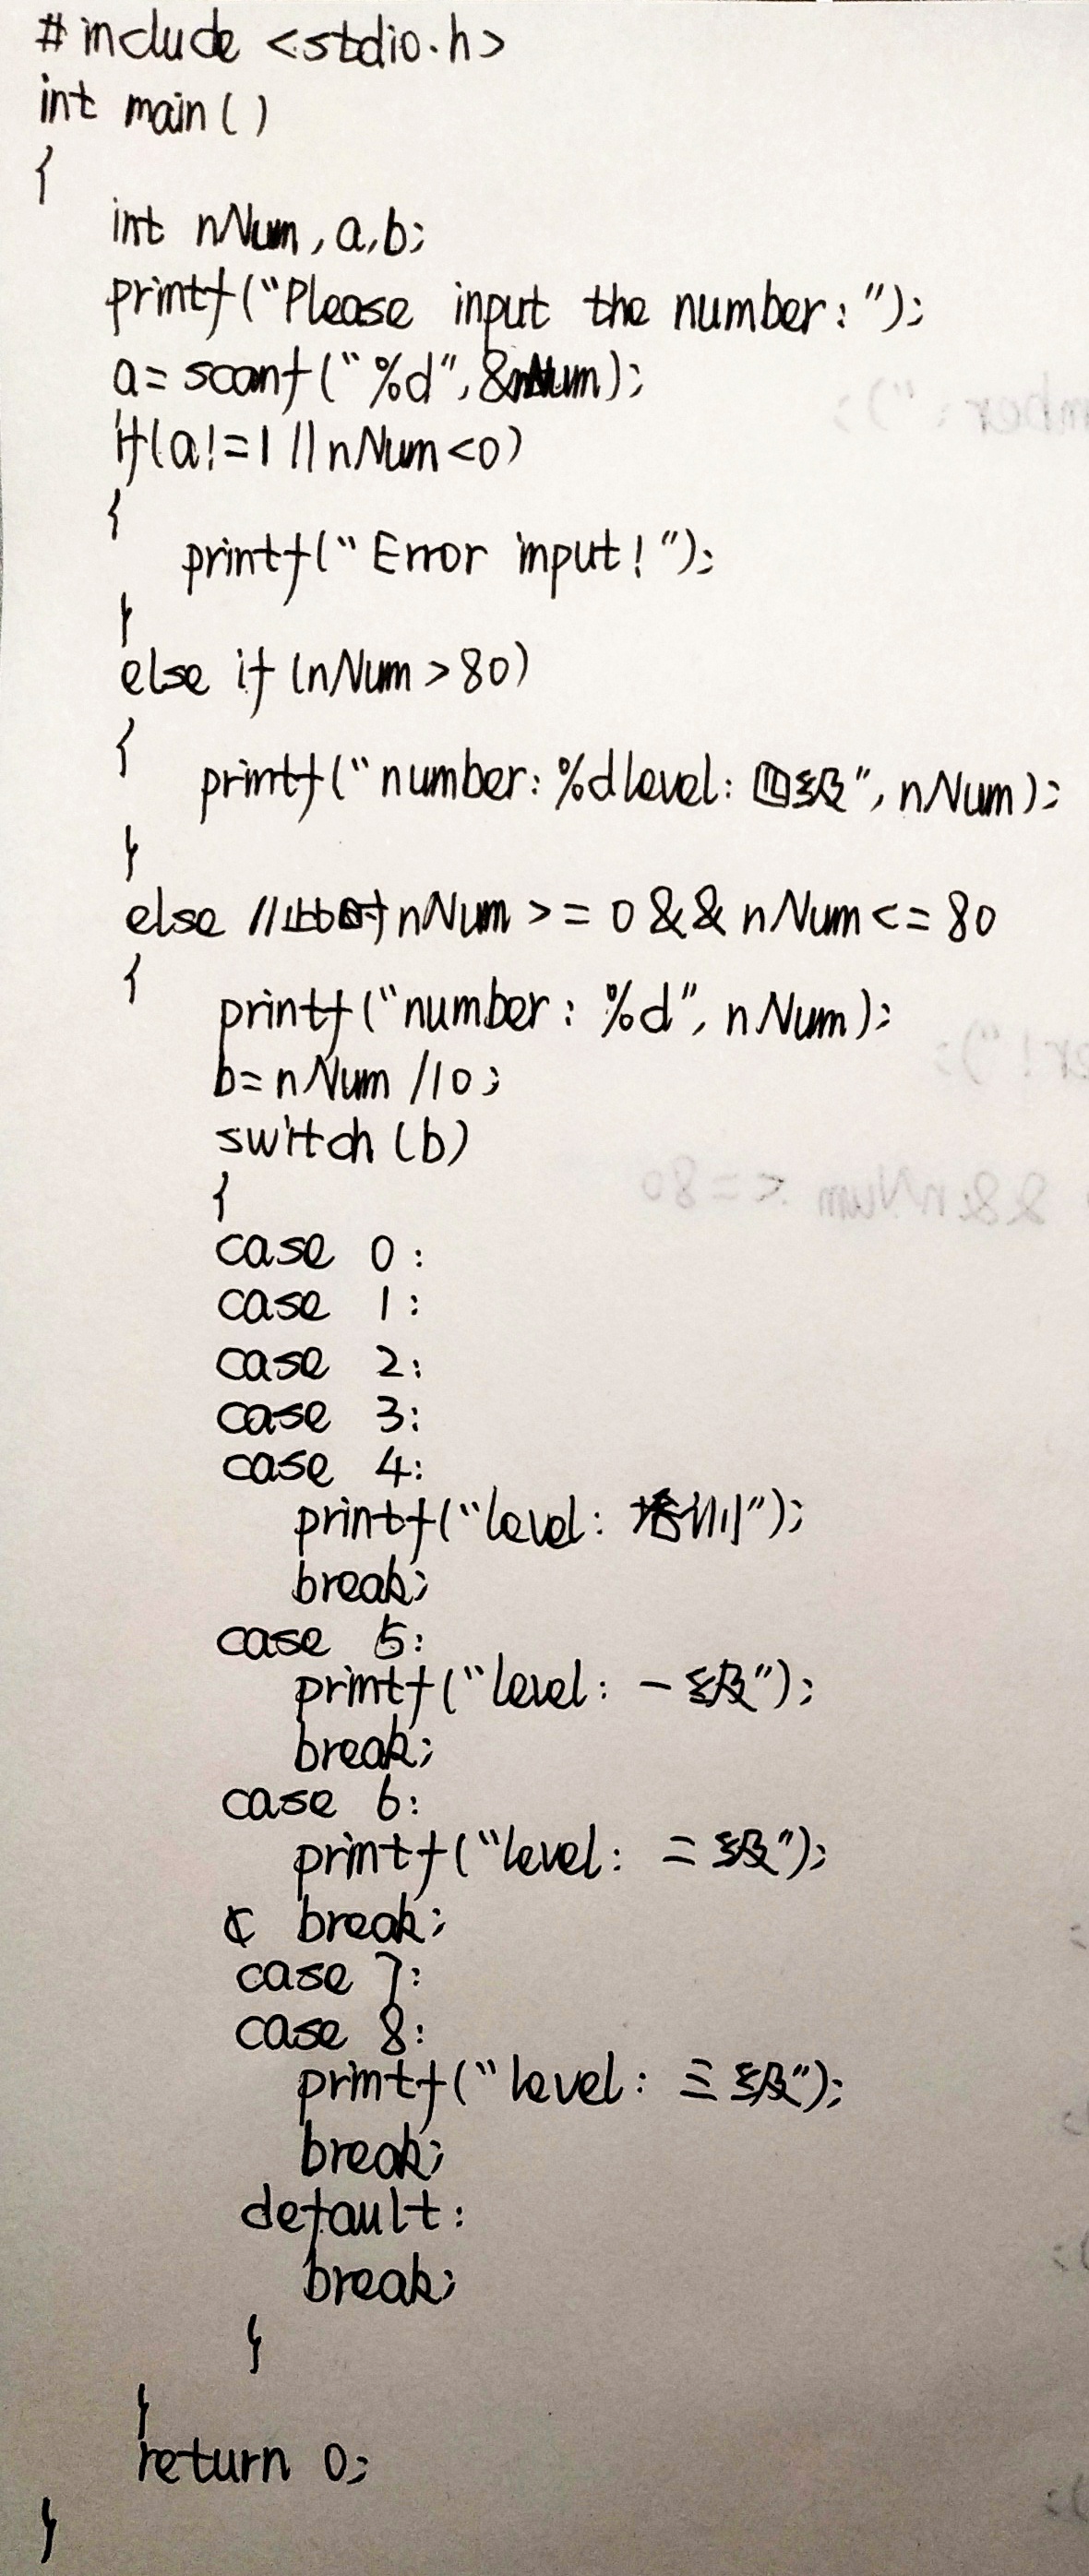 #include <stdio.h>
int main()
{
int nNum,a,b;
printf("Please input the number:");
a=scanf("%d",&nNum);
if(a!=1||nNum<0)
{
printf("Error input!");
}
else if(nNum>80)
{
printf("number:%dlevel:四级",nNum);
}
else //此时nNum>=0&&nNum<=80
{
printf("number:%d",nNum);
b=nNum/10;
switch(b)
{
case 0:
case 1:
case 2:
case 3:
case 4:
printf("level:培训");
break;
case 5:
printf("level:一级");
break;
case 6:
printf("level:二级");
break;
case 7:
case 8:
printf("level:三级");
break;
default:
break;
}
}
return 0;
}